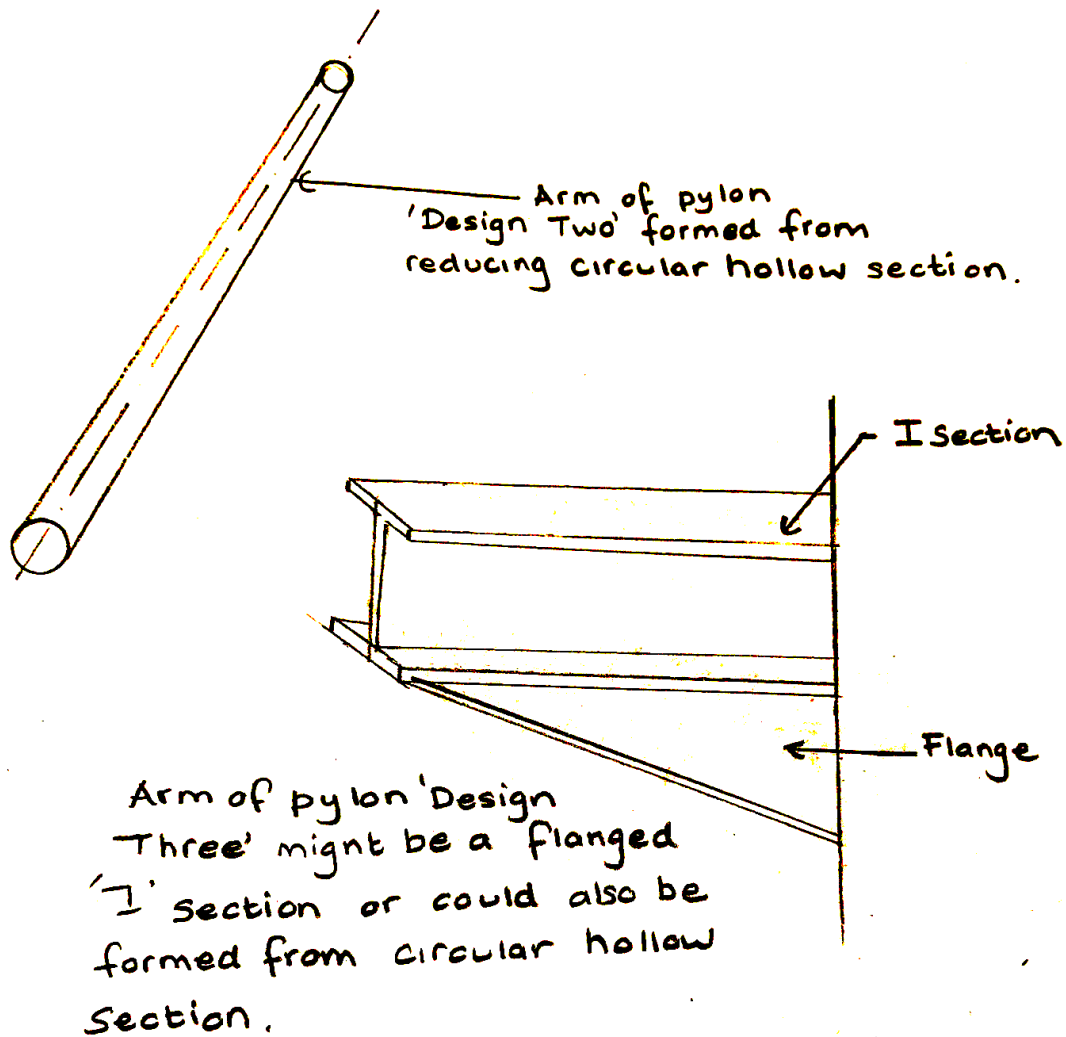 Arm of pylon
'Design Two' formed from
reducing circular hollow section.
I section
Flange
Arm of pylon 'Design
Three' mignt be a flanged
'I' section or could also be
formed from circular hollow
section.